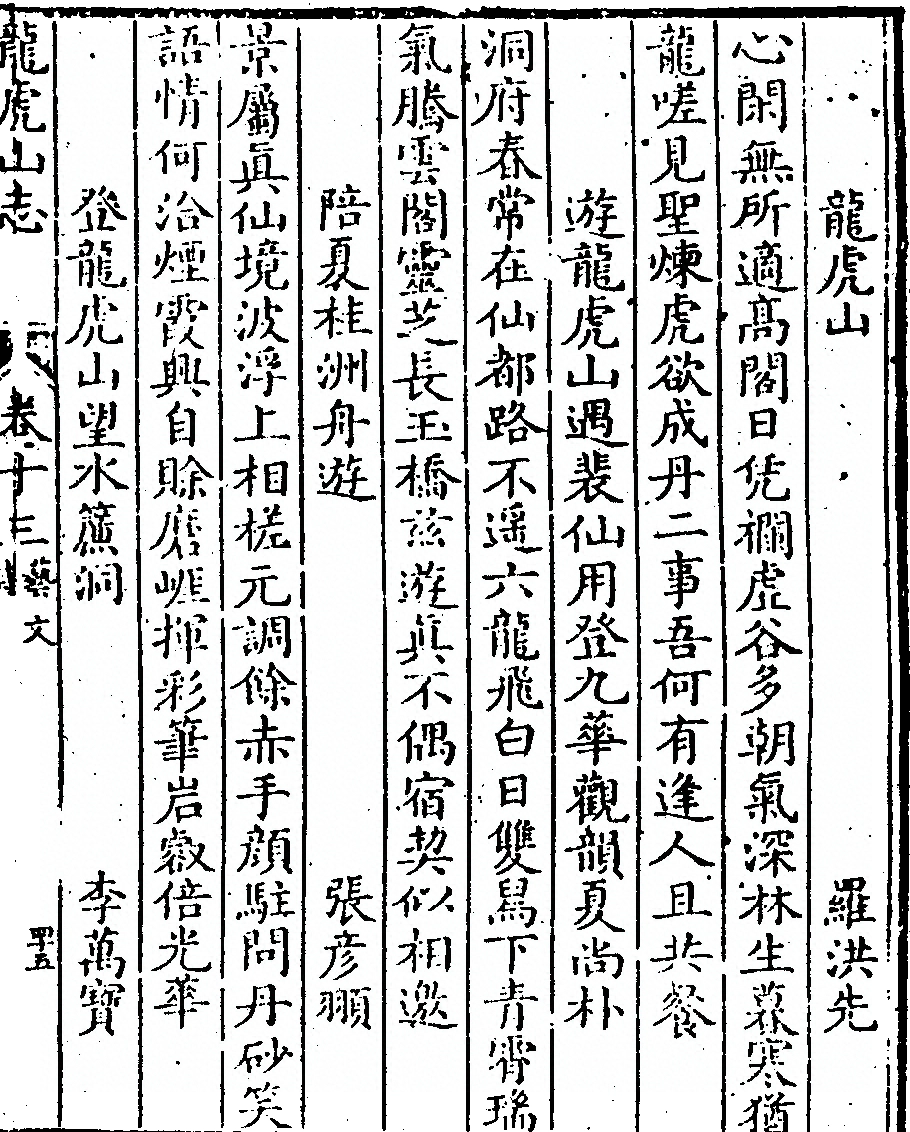 龍虎山 羅洪先
心閑無所適高閣日凭襴虎谷多朝氣深林生暮寒猶
龍嗟見聖煉虎欲成丹二事吾何有逢人且共餐
遊龍虎山遇裴仙用登九華觀韻夏尚朴
洞府春常在仙都路不遥六龍飛白日雙舄下青霄瑞
氣騰雲閣靈芝長玉橋兹遊真不偶宿契似相邀
陪夏桂洲舟遊 張彦
景屬真仙境波浮上相槎元調餘赤手顔駐問丹砂笑
語情何洽煙霞興自賖磨崕揮彩筆岩嶔倍光華
登龍虎山望水簾洞 李萬寶
龍虎山志 卷十三 藝文 四十五